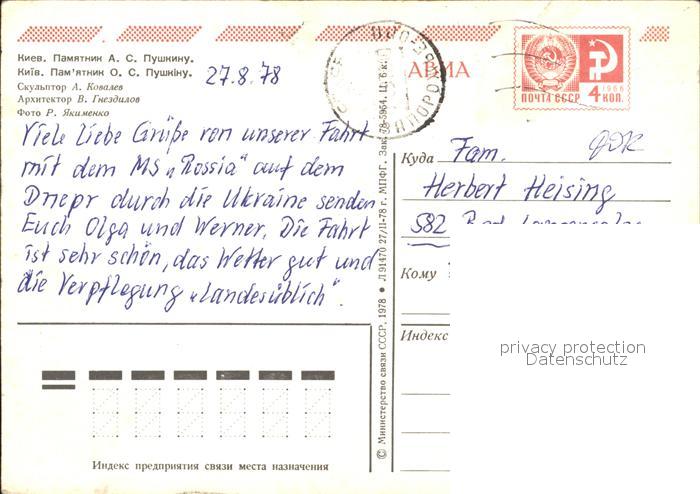 Киев. Памятник А. С. Пушкину.
Київ. Пам'ятник О. С. Пушкіну.
Скульптор А. Ковалев
Архитектор В. Гнездилов
Фото Р. Якименко
27.8.78
АВИА
ПОЧТА СССР 4 КОП.
1966
Viele liebe Grüße von unserer Fahrt
mit dem MS „Rossia" auf dem
Dnepr durch die Ukraine senden
Euch Olga und Werner. Die Fahrt
ist sehr schön, das Wetter gut und
die Verpflegung „landesüblich".
© Министерство связи СССР, 1978 • Л 91470 27/II-78 г. МПФГ. Зак. 78-5964. Ц. 6 к.
Куда Fam.
Herbert Heising
582 Bad Langensalza
Кому
Индекс
privacy protection
Datenschutz
Индекс предприятия связи места назначения